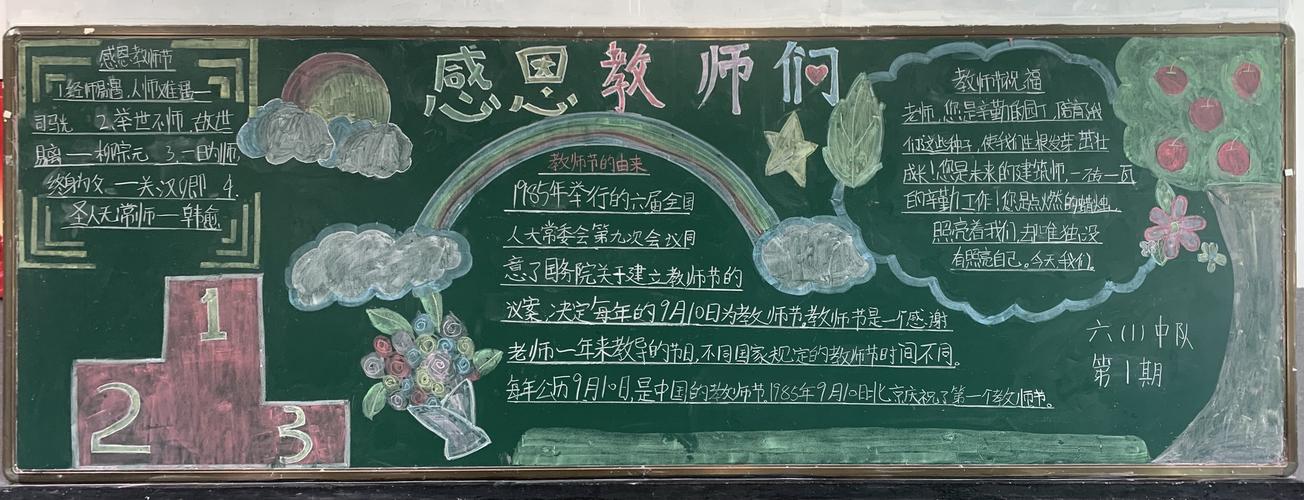 感恩教师们
感恩教师节
1.经师易遇,人师难遇—
司马光 2.举世不师,故道
易离——柳宗元 3.一日为师,
终身为父 —关汉卿 4.
圣人无常师——韩愈
1
2
3
教师节的由来
1985年举行的六届全国
人大常委会第九次会议同
意了国务院关于建立教师节的
议案,决定每年的9月10日为教师节,教师节是一个感谢
老师一年来教导的节日,不同国家规定的教师节时间不同。
每年公历9月10日,是中国的教师节,1985年9月10日北京庆祝了第一个教师节。
教师节祝福
老师,您是辛勤的园丁,陪育我
们这些种子,使我们生根发芽茁壮
成长!您是未来的建筑师,一砖一瓦
的辛勤工作!您是点燃的蜡烛,
照亮着我们,却唯独没
有照亮自己。今天我们
六(1)中队
第1期